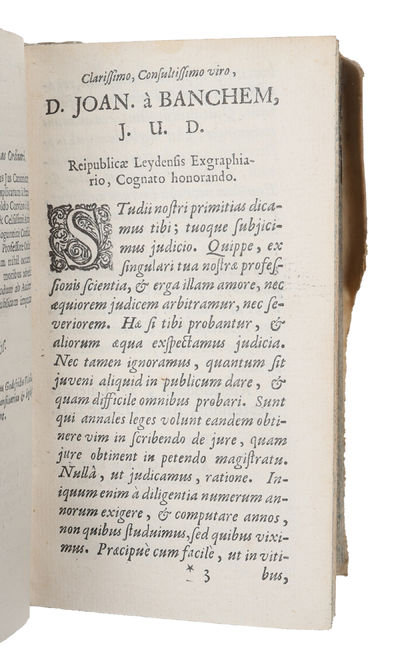 Clarissimo, Consultissimo viro,
D. JOAN. à BANCHEM,
J. U. D.
Reipublicæ Leydensis Exgraphia-
rio, Cognato honorando.
STudii nostri primitias dica-
mus tibi; tuoque subjici-
mus judicio. Quippe, ex
singulari tua nostræ profes-
sionis scientia, & erga illam amore, nec
æquiorem judicem arbitramur, nec se-
veriorem. Hæ si tibi probantur, &
aliorum æqua exspectamus judicia.
Nec tamen ignoramus, quantum sit
juveni aliquid in publicum dare, &
quam difficile omnibus probari. Sunt
qui annales leges volunt eandem obti-
nere vim in scribendo de jure, quam
jure obtinent in petendo magistratu.
Nullâ, ut judicamus, ratione. In-
iquum enim à diligentia numerum an-
norum exigere, & computare annos,
non quibus studuimus, sed quibus vixi-
mus. Præcipuè cum facile, ut in viti-
* 3 bus,